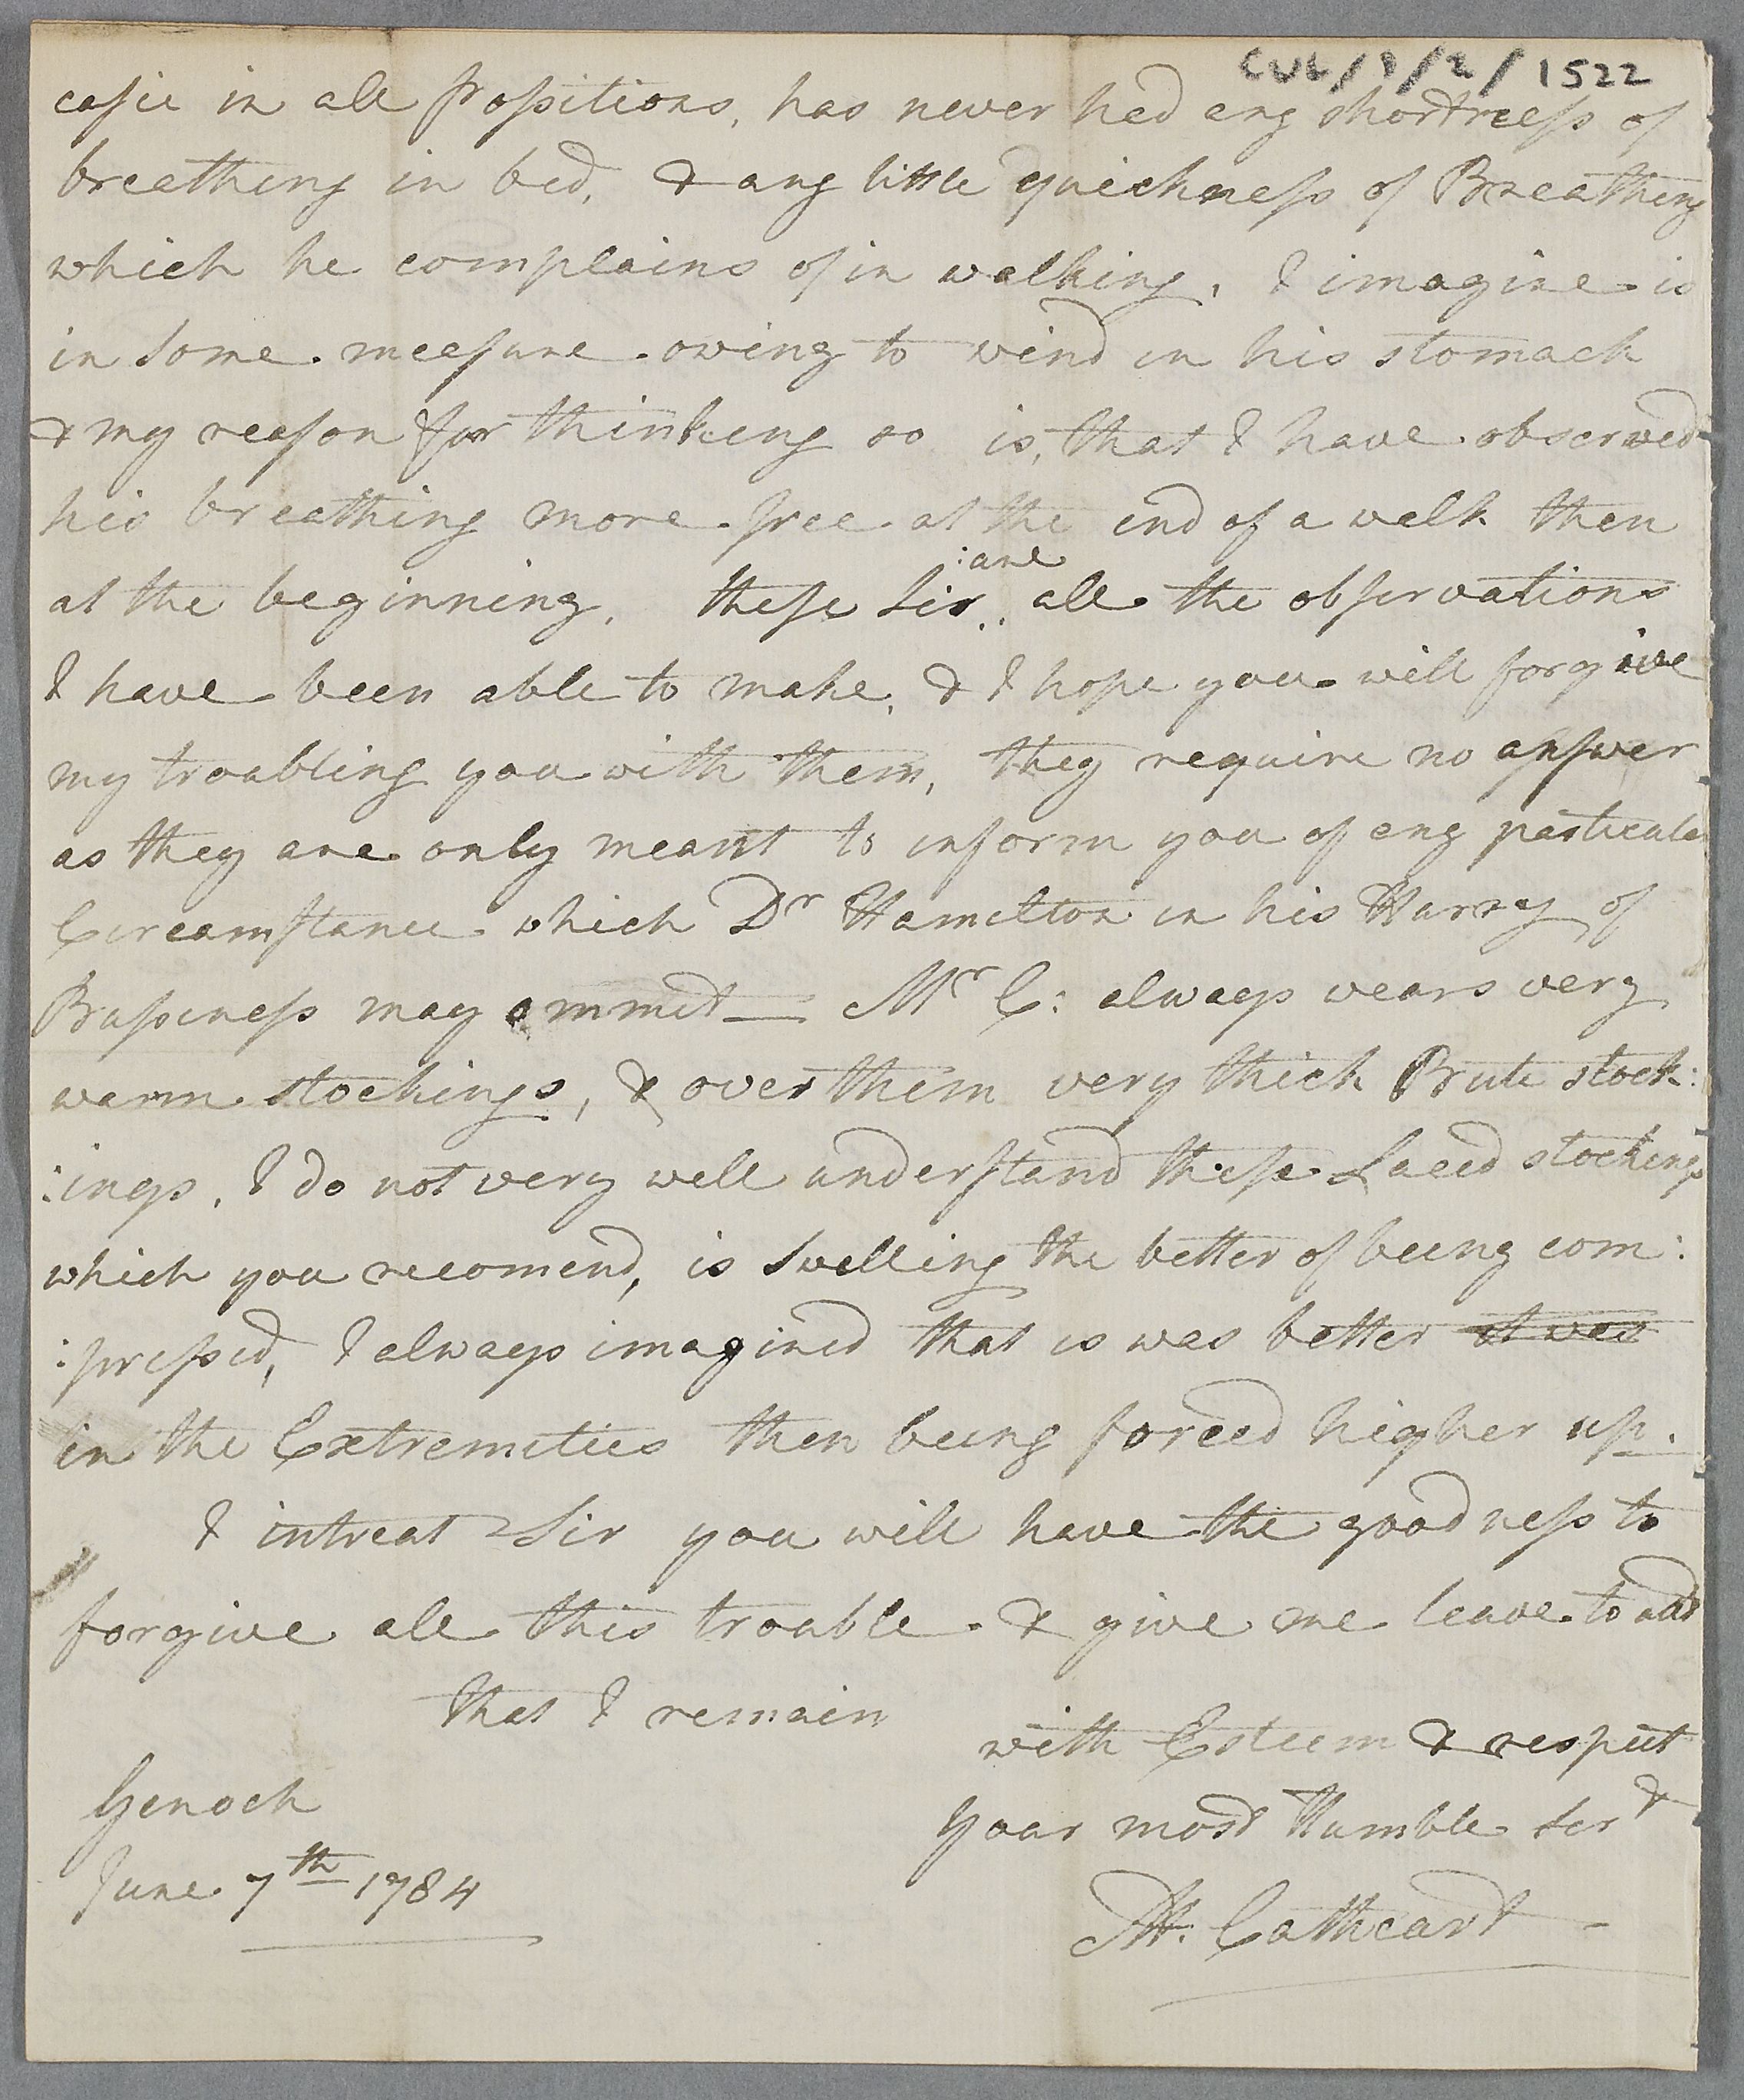 CUL/1/2/1522
easie in all possitions, has never hed eny shortness of
breatheng in bed, & any little quickness of Breatheng
which he complains of in walking, I imagine is
in some measure owing to wind in his stomach
& my reason for thinkeng so is, that I have observed
his breathing more free at the end of a walk then
:are
at the beginning, these Sir.. all the observations
I have been able to make, & I hope you will forgive
my troubling you with them, they require no answer
as they are only meant to inform you of eny particular
Circumstance which Dr Hamilton in his Hurry of
Bussiness may ommit — Mr C: always wears very
warm stockings, & over them very thick Brute stock:
:ings, I do not very well understand these Laced stockings
which you recomend, is Swelling the better of being com:
:pressed, I always imagined that is was better it was
in the Extremities then being forced higher up.
I intreat Sir you will have the goodness to
forgive all this trouble & give me leave to add
that I remain
with Esteem & respect
your most Humble Sert
M: Cathcart
Genoch
June 7th 1784